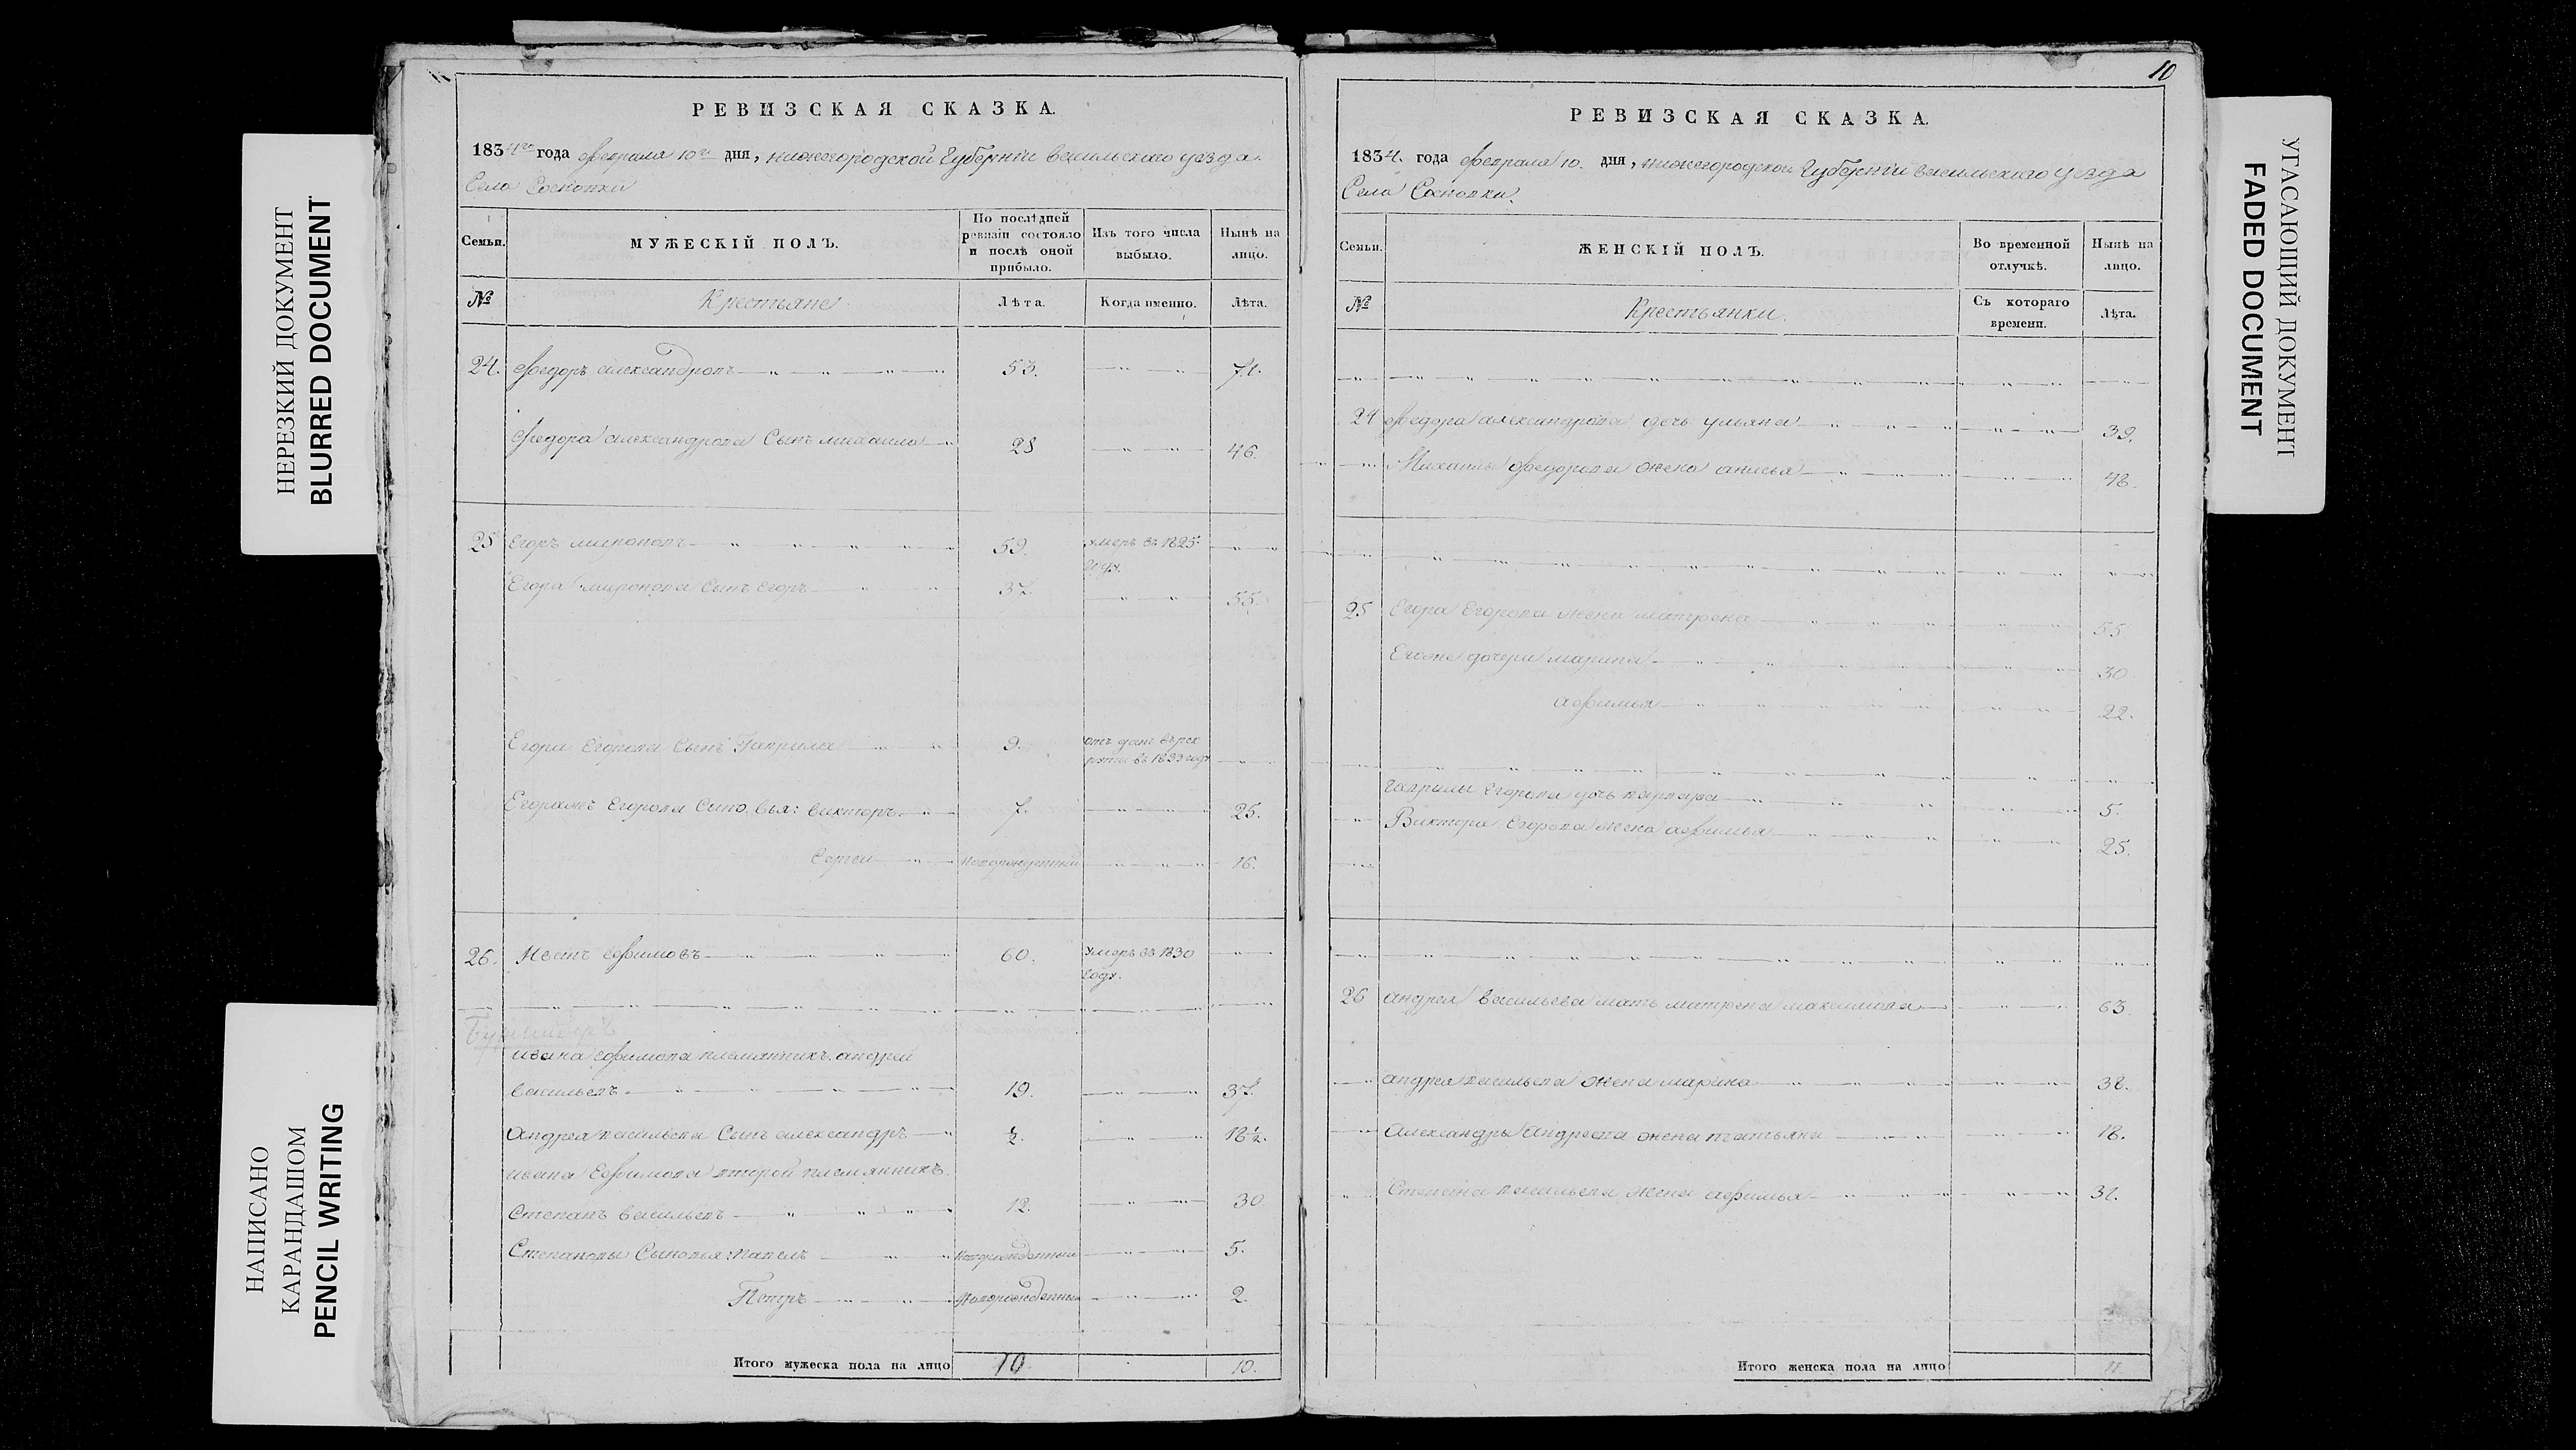 НЕРЕЗКИЙ ДОКУМЕНТ
BLURRED DOCUMENT
НАПИСАНО
КАРАНДАШОМ
PENCIL WRITING
РЕВИЗСКАЯ СКАЗКА.
1834го года февраля 10го дня, нижегородской Губернiи васильскаго уезда.
Села Сосновки
Семьи.
МУЖЕСКІЙ ПОЛЪ.
По послѣдней ревизіи состояло и послѣ оной прибыло.
Изъ того числа выбыло.
Нынѣ на лицо.
№
Крестьяне
Лѣта.
Когда именно.
Лѣта.
24. Федоръ александровъ 53. 71.
Федора александрова Сынъ михаило 28 46.
25 Егоръ мироновъ 59. умеръ въ 1825
году.
Егора миронова Сынъ Егоръ 37 55.
Егора Егорова Сынъ Гаврила 9. отъ данъ въ рек
руты въ 1833 году
Егора Егорова Сыно вья: викторъ 7. 25.
Сергей новорожденный 16.
26. Иванъ ефимовъ 60. умеръ въ 1830
году.
ивана ефимова племянникъ андрей
васильевъ 19. 37.
Андрея васильева Сынъ александръ ½. 18½.
ивана Ефимова второй племянникъ
Степанъ васильевъ 12. 30
Степановы Сыновья: Павелъ новорожденный 5.
Петръ Новорожденный 2.
Итого мужеска пола на лицо 10 10.
10
РЕВИЗСКАЯ СКАЗКА.
1834. года февраля 10. дня, нижегородской Губернiи васильскаго уезда
Села Сосновки.
Семьи.
ЖЕНСКІЙ ПОЛЪ.
Во временной отлучкѣ.
Нынѣ на лицо.
№
Крестьянки.
Съ котораго времени.
Лѣта.
24 Федора александрова дочь ульяна 39.
Михаилы федорова жена анисья 48.
25 Егора Егорова жена матрена 55
Егоже дочери марина 30
афимья 22.
Гаврилы Егорова дочь варвара 5.
Виктора Егорова жена афимья 25.
26 андрея васильева мать матрена максимова 63.
андрея васильева жена марина 38.
Александры Андреева жена татьяна 18.
Степана васильева жена афимья 32.
Итого женска пола на лицо
УГАСАЮЩИЙ ДОКУМЕНТ
FADED DOCUMENT